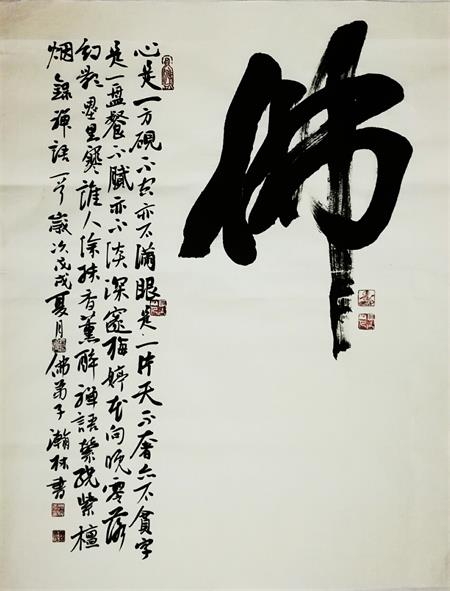 佛
心是一方砚不空亦不满眼是一片天不奢亦不贪字
是一盘餐不腻亦不淡深窗梅婷花向晚零落
幻影墨里寒谁人添袂香薰醉禅语萦绕紫檀
烟录禅语一首岁次戊戌夏月佛弟子瀚林书